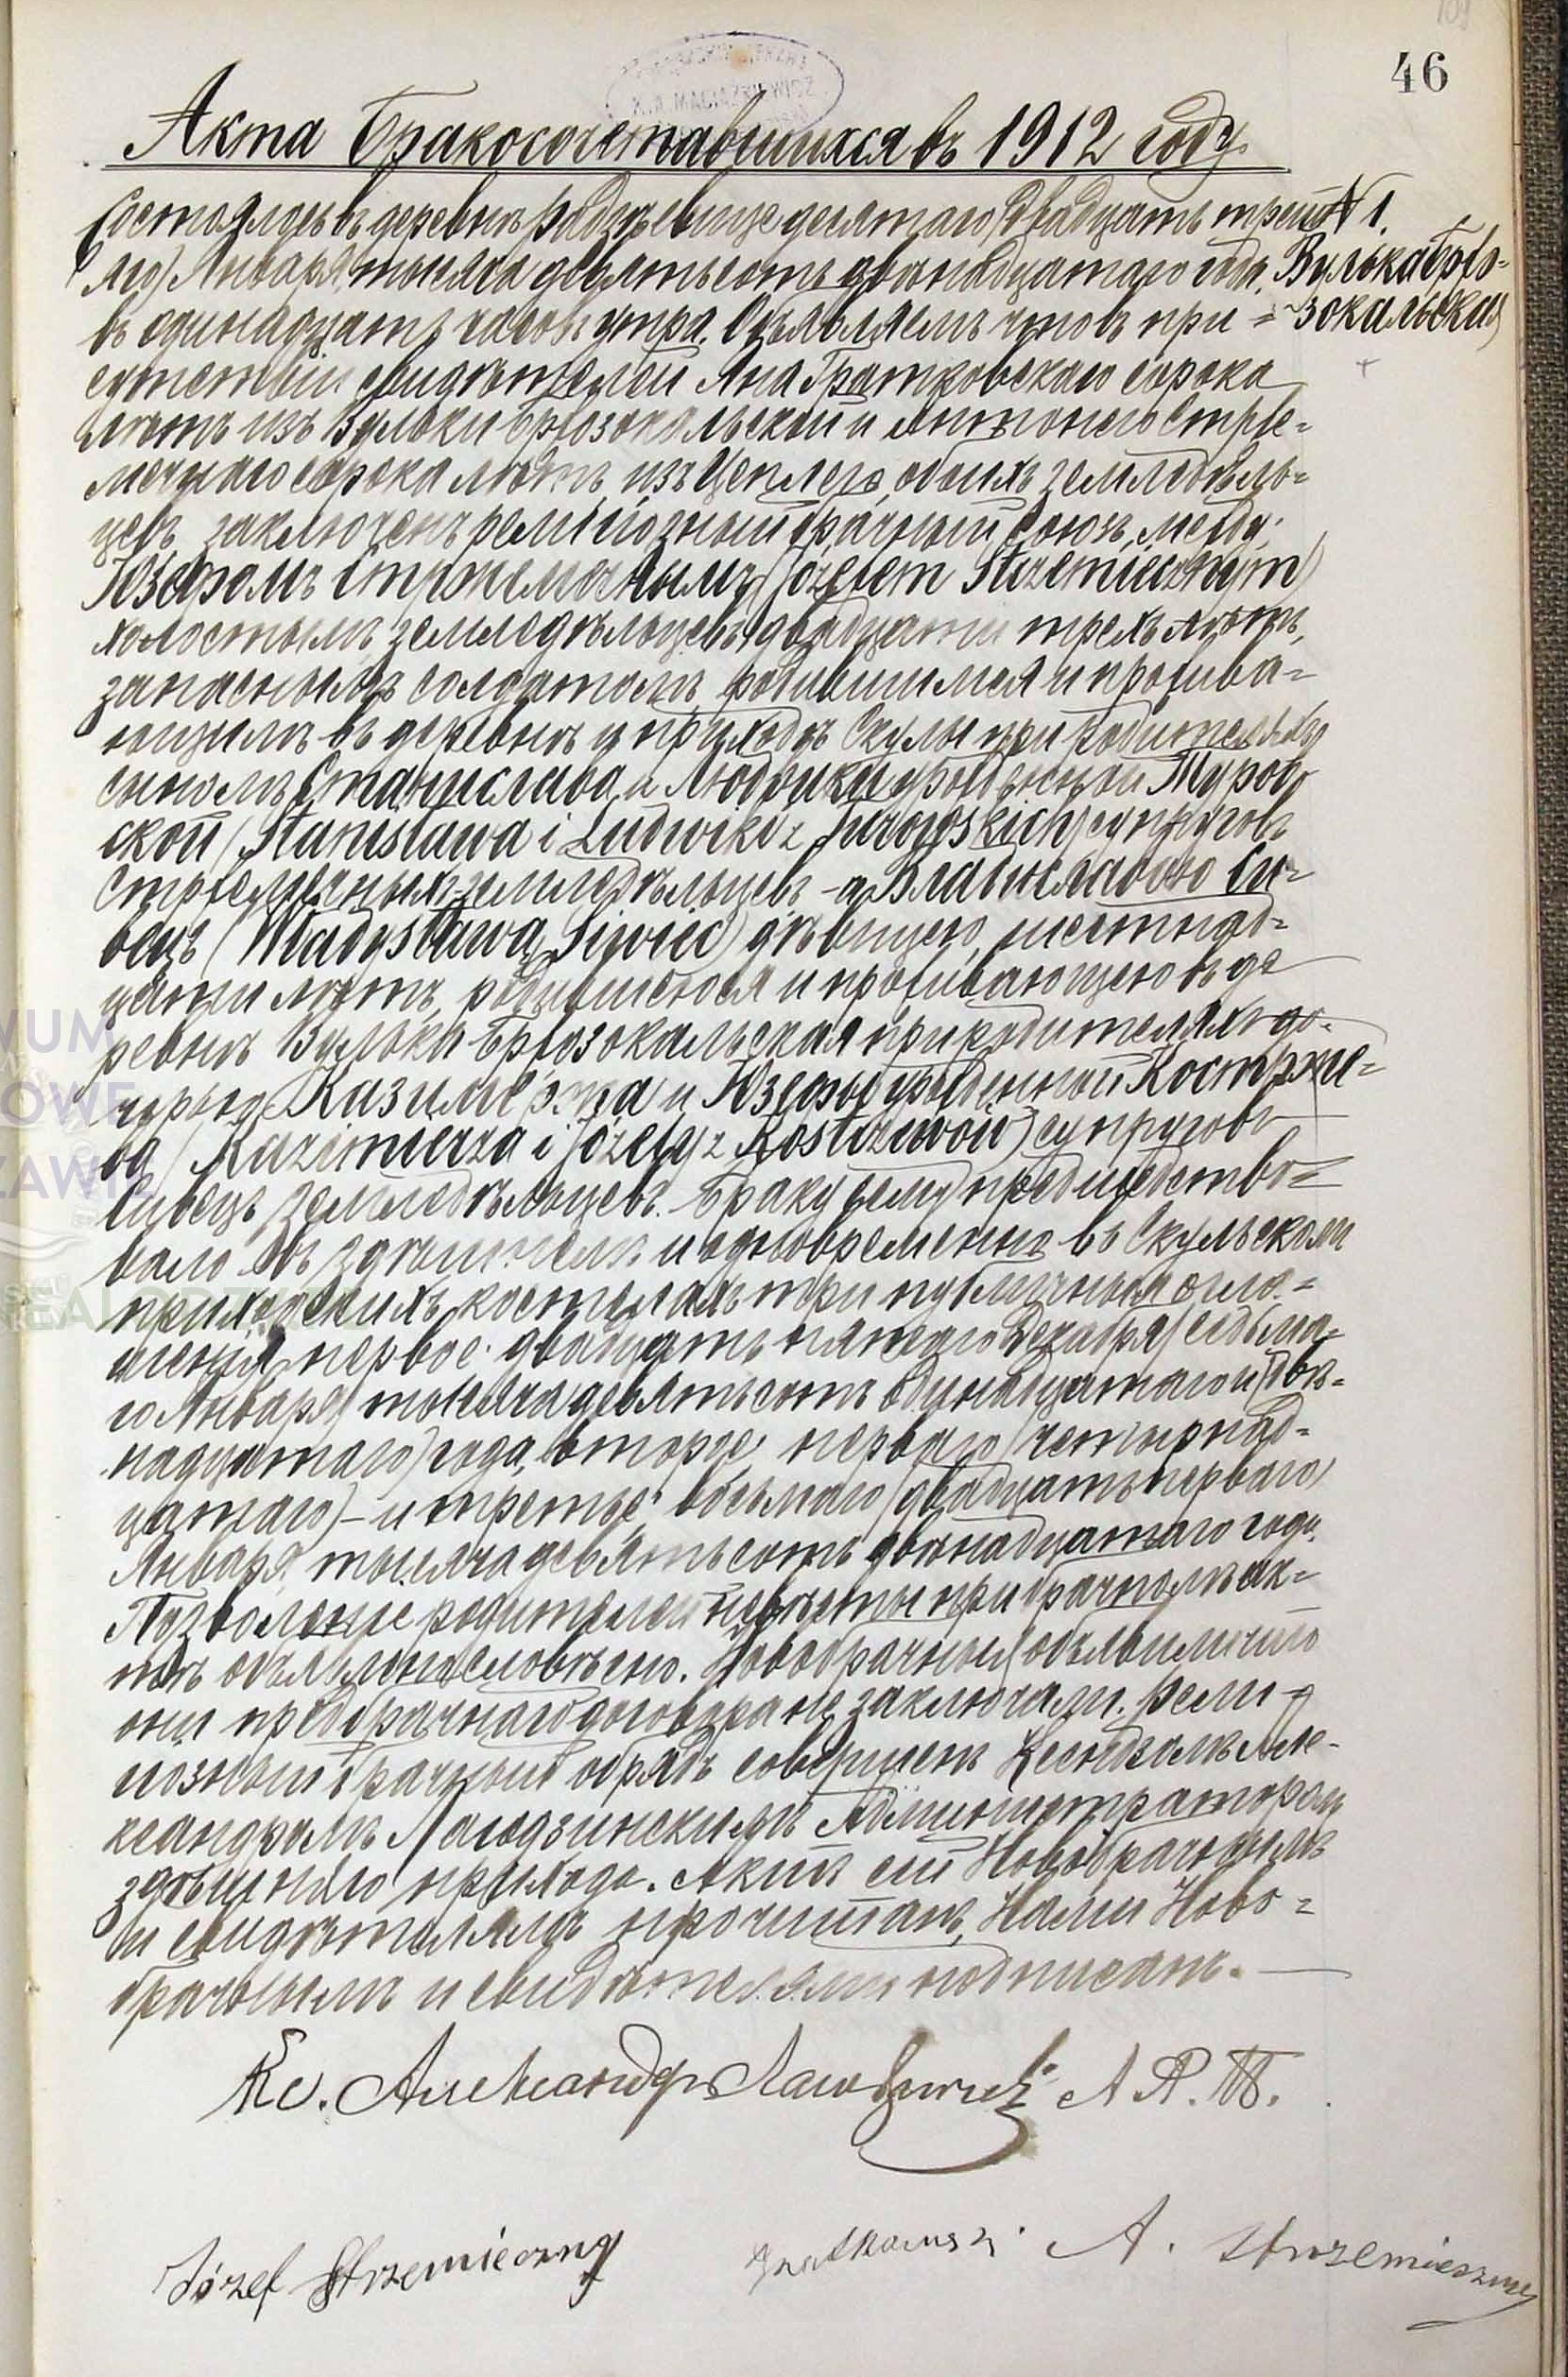 46
Акта Бракосочетавшихся въ 1912 году.
№ 1.
Вулька Брю-
зокальская
Состоялось въ деревнѣ Радзѣевице десятаго (двадцать треть-
яго) Января, тысяча девятьсотъ двѣнадцатаго года,
въ одинадцать часовъ утра. Объявляемъ что въ при-
сутствіи свидѣтелей Яна Гратковскаго сорока
лѣтъ изъ Вульки Брюзокальской и Антонего Стрже-
мечнаго сорока лѣтъ, изъ Цеплего, обоихъ земледѣль-
цевъ, заключенъ религіозный брачный союзъ, между:
Юзефомъ Стржемечнымъ, (Józefem Strzemiecznym)
холостымъ, земледѣльцевъ, двадцати трехъ лѣтъ,
запаснымъ солдатомъ, родившимся и прожива-
ющимъ въ деревнѣ и приходѣ Скулы при родителяхъ,
сыномъ Станислава и Людвики урожденной Туров-
ской (Stanisława i Ludwiki z Turowskich) супруговъ
Стржемечныхъ земледѣльцевъ – а Владиславою Си-
вецъ (Władysławą Siwiec) дѣвицею, шестнад-
цати лѣтъ, родившеюся и проживающею въ де-
ревнѣ Вулька Брюзокальская при родителяхъ до-
черью Казимержа и Юзефы урожденной Костржe-
ва (Kazimierza i Józefy z Kostrzewów) супруговъ
Сивецъ, земледѣльцевъ. Браку сему предшедство-
вало въ здѣшнемъ и одновременно въ Скульскомъ
приходскихъ костелахъ три публичныя огла-
шенія, первое: двадцать пятаго Декабря (седьма-
го Января) тысяча девятьсотъ одинадцатаго (двѣ-
надцатаго) года, второе: перваго (четырнад-
цатаго) – и третье: восьмаго (двадцать перваго)
Января, тысяча девятьсотъ двѣнадцатаго года.
Позволеніе родителей невѣсты при брачномъ ак-
тѣ объявлено словѣсно. Новобрачные объявили что
они предбрачнаго договора не заключали. Рели-
гіозный брачный обрядъ совершенъ Ксендзомъ Але-
ксандромъ Лагодзинскимъ Администраторомъ
здѣшняго прихода. Актъ сей Новобрачнымъ
и свидѣтелямъ прочитанъ, Нами Ново-
брачнымъ и свидѣтелями подписанъ.
Кс. Александръ Лагодзинскій А.П.
Józef Strzemieczny
Gratkowski
A. Strzemieszny